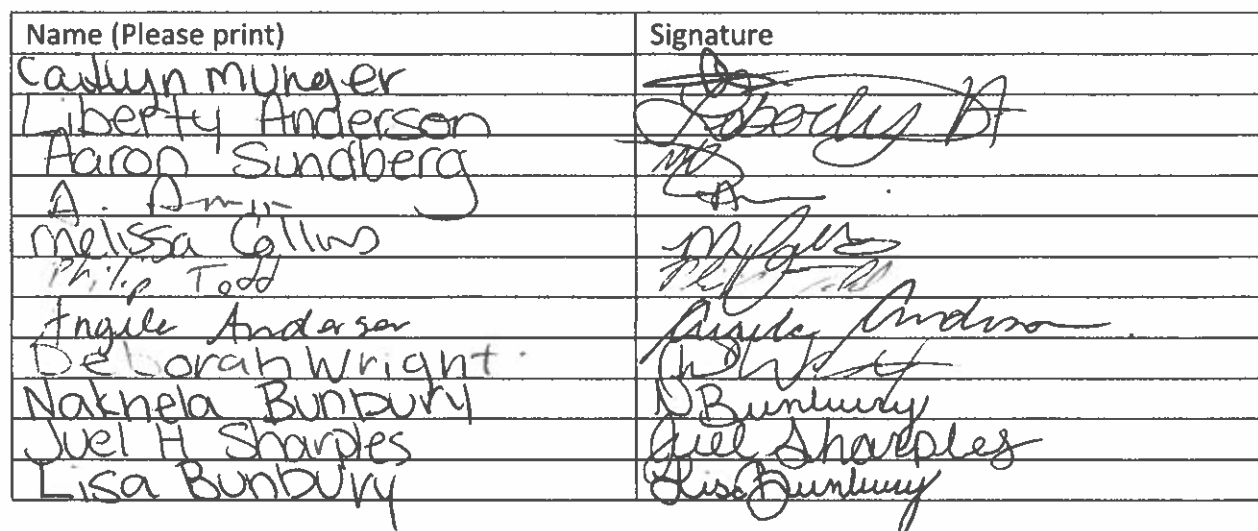 Name (Please print) Signature
Caitlyn Munger
Liberty Anderson
Aaron Sundberg
A. Amir A
Melissa Collins M Collins
Philip Todd Philip Todd
Angele Anderson Angele Anderson
Deborah Wright. D Wright
Nakhela Bunbury N Bunbury
Juel H Sharples Juel Sharples
Lisa Bunbury Lisa Bunbury